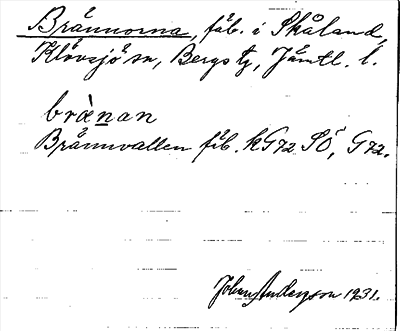 Brännorna, fäb. i Skålan,
Klövsjö sn, Bergs tg, Jämtl. l.
brὰnan
Brännvallen fäb. kG72 SÖ, G72.
Johan Anderson 1931.